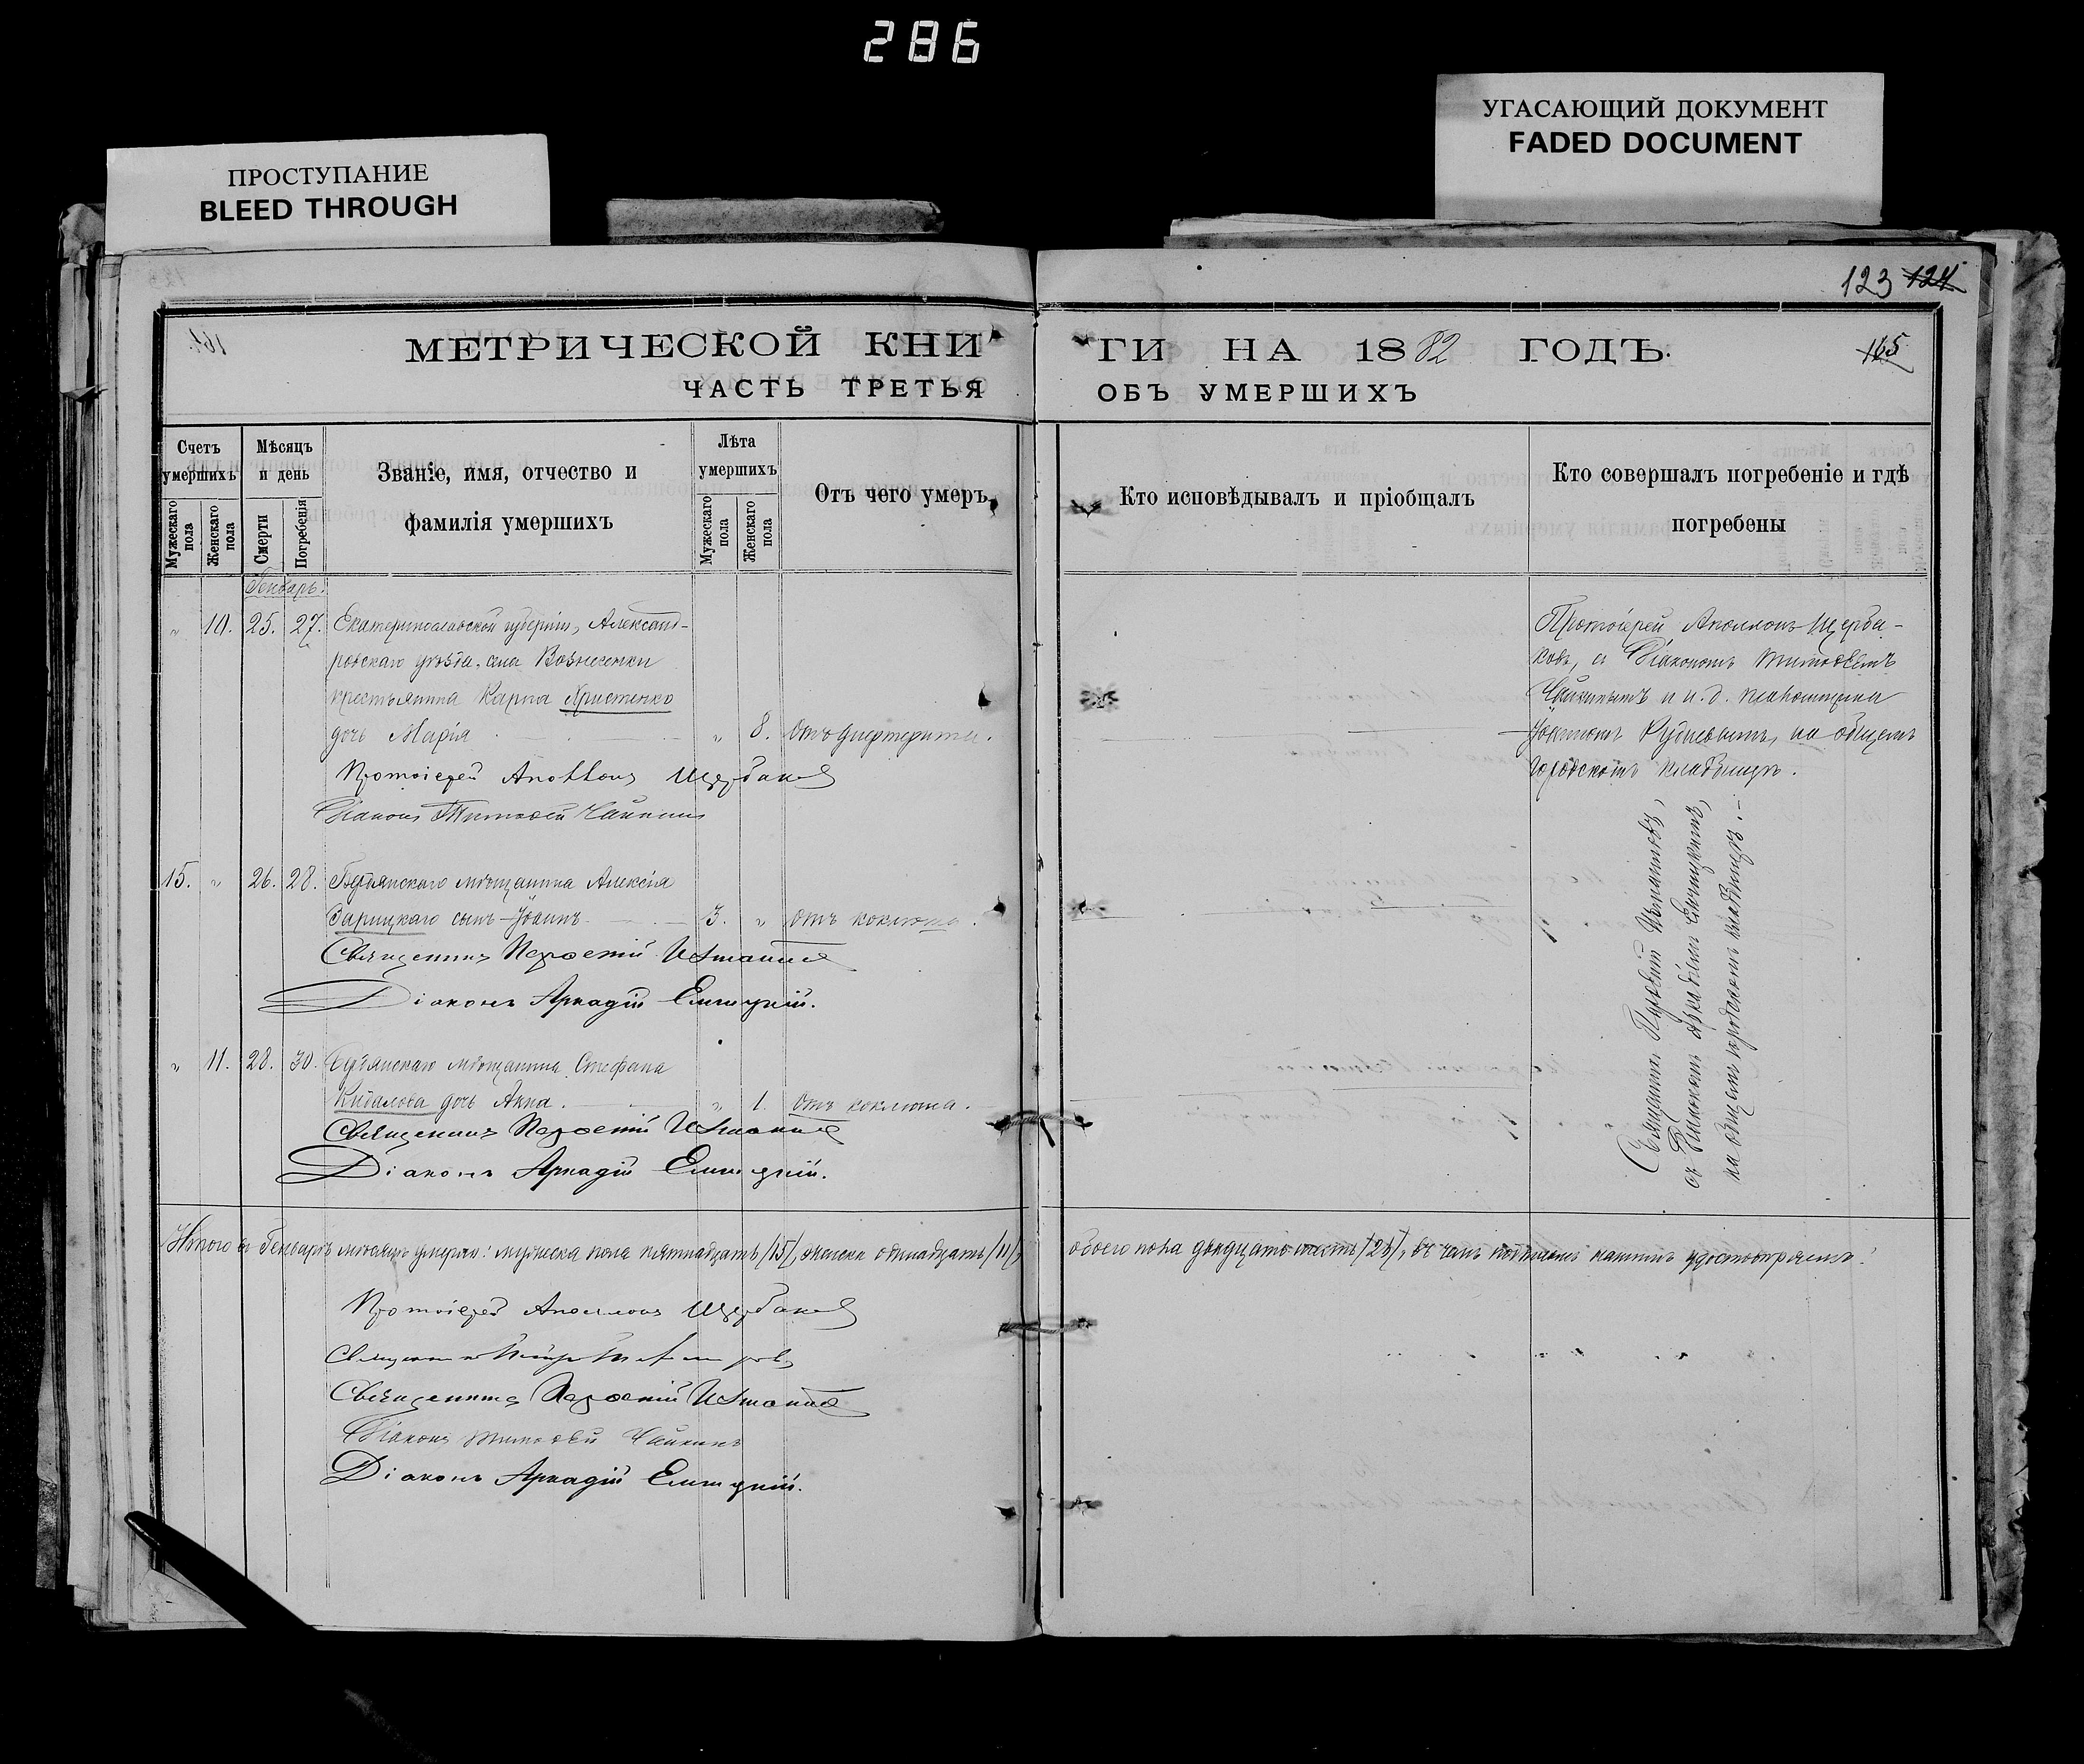 286
ПРОСТУПАНИЕ
BLEED THROUGH
УГАСАЮЩИЙ ДОКУМЕНТ
FADED DOCUMENT
123 124
МЕТРИЧЕСКОЙ КНИ
ГИ НА 1882 ГОДЪ.
165
ЧАСТЬ ТРЕТЬЯ
ОБЪ УМЕРШИХЪ
Счетъ умершихъ
Мужескаго пола
Женскаго пола
Мѣсяцъ и день
Смерти
Погребенія
Званіе, имя, отчество и
фамилія умершихъ
Лѣта умершихъ
Мужескаго пола
Женскаго пола
Отъ чего умеръ
Кто исповѣдывалъ и пріобщалъ
Кто совершалъ погребеніе и гдѣ
погребены
Генварь.
" 10. 25. 27. Екатеринославской губерніи, Александ-
ровскаго уѣзда, села Вознесенки
крестьянина Карпа Христенко
дочь Марія " 8. Отъ дифтерита.
Протоіерей Аполлонъ Щерба-
ковъ, съ Діакономъ Тимоѳеемъ
Чайкинымъ и и. д. псаломщика
Іоанномъ Рудневымъ, на общемъ
городскомъ кладбищѣ.
Протоіерей Аполлонъ Щербаковъ
Діаконъ Тимоѳей Чайкинъ
15. " 26. 28. Бердянскаго мѣщанина Алексія
Зарицкаго сынъ Іоаннъ 3. " Отъ коклюша.
Священникъ
Діаконъ Аркадій Елицкій.
" 11. 28. 30. Бердянскаго мѣщанина Стефана
дочь Анна. " 1. Отъ коклюша.
Священникъ
Діаконъ Аркадій Елицкій.
Священникъ
съ Діакономъ Аркадіемъ Елицкимъ,
на общемъ городскомъ кладбищѣ.
Итого въ Генварѣ мѣсяцѣ умерло: мужеска пола пятнадцать /15/, женска одинадцать /11/,
обоего пола двадцать шесть /26/, въ чемъ подписомъ нашимъ удостовѣряемъ:
Протоіерей Аполлонъ Щербаковъ
Священникъ
Священникъ
Діаконъ Тимоѳей Чайкинъ
Діаконъ Аркадій Елицкій.